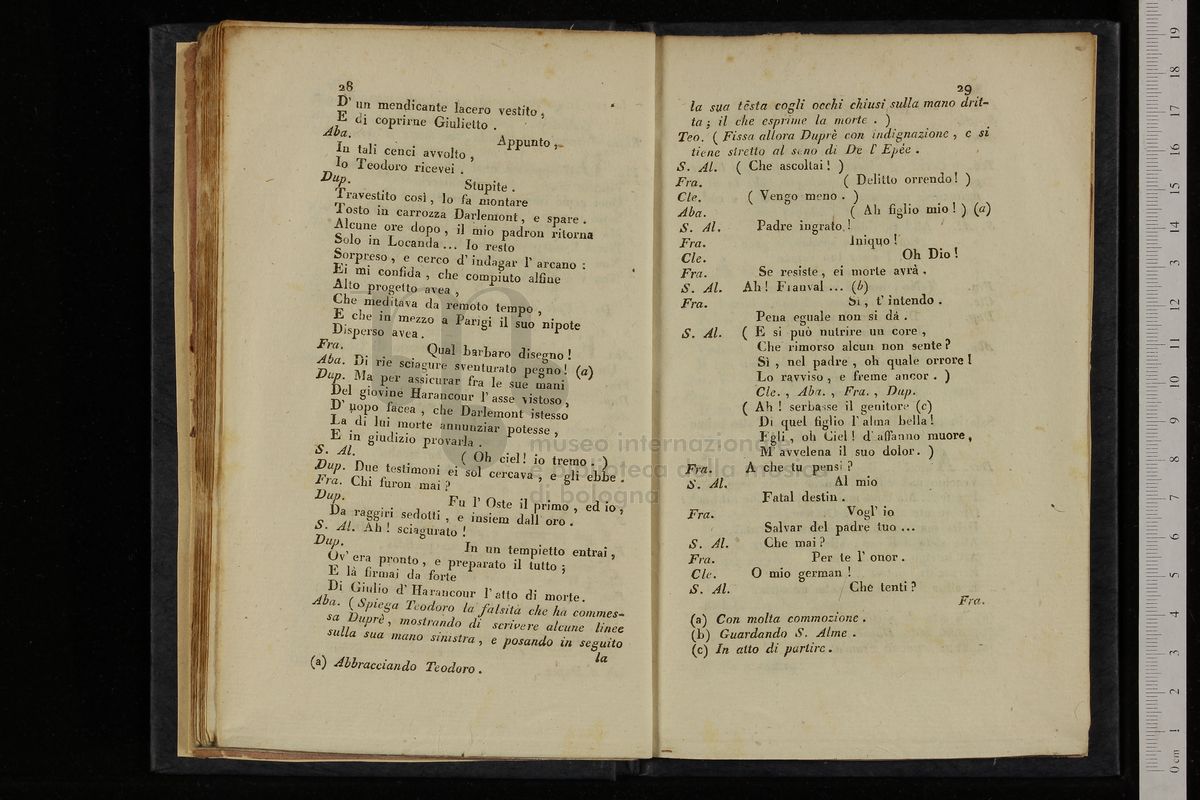 28
D' un mendicante lacero vestito,
E di coprirne Giulietto.
Aba. Appunto,
In tali cenci avvolto,
Io Teodoro ricevei.
Dup. Stupite.
Travestito così, lo fa montare
Tosto in carrozza Darlemont, e spare.
Alcune ore dopo, il mio padron ritorna
Solo in Locanda... Io resto
Sorpreso, e cerco d' indagar l' arcano:
Ei mi confida, che compiuto alfine
Alto progetto avea,
Che meditava da remoto tempo,
E che in mezzo a Parigi il suo nipote
Disperso avea.
Fra. Qual barbaro disegno!
Aba. Di rie sciagure sventurato pegno! (a)
Dup. Ma per assicurar fra le sue mani
Del giovine Harancour l' asse vistoso,
D' uopo facea, che Darlemont istesso
La di lui morte annunziar potesse,
E in giudizio provarla.
S. Al. ( Oh ciel! io tremo. )
Dup. Due testimoni ei sol cercava, e gli ebbe.
Fra. Chi furon mai?
Dup. Fu l' Oste il primo, ed io,
Da raggiri sedotti, e insiem dall' oro.
S. Al. Ah! sciagurato!
Dup. In un tempietto entrai,
Ov' era pronto, e preparato il tutto;
E là firmai da forte
Di Giulio d' Harancour l' atto di morte.
Aba. ( Spiega Teodoro la falsità che ha commes-
sa Duprè, mostrando di scrivere alcune linee
sulla sua mano sinistra, e posando in seguito
la
(a) Abbracciando Teodoro.
29
la sua testa cogli occhi chiusi sulla mano drit-
ta; il che esprime la morte. )
Teo. ( Fissa allora Duprè con indignazione, e si
tiene stretto al seno di De l' Epèe.
S. Al. ( Che ascoltai! )
Fra. ( Delitto orrendo! )
Cle. ( Vengo meno. )
Aba. ( Ah figlio mio! ) (a)
S. Al. Padre ingrato!
Fra. Iniquo!
Cle. Oh Dio!
Fra. Se resiste, ei morte avrà.
S. Al. Ah! Franval ... (b)
Fra. Sì, t' intendo.
Pena eguale non si dà.
S. Al. ( E si può nutrire un core,
Che rimorso alcun non sente?
Sì, nel padre, oh quale orrore!
Lo ravviso, e freme ancor. )
Cle., Aba., Fra., Dup.
( Ah! serbasse il genitore (c)
Di quel figlio l' alma bella!
Egli, oh Ciel! d' affanno muore,
M' avvelena il suo dolor. )
Fra. A che tu pensi?
S. Al. Al mio
Fatal destin.
Fra. Vogl' io
Salvar del padre tuo ...
S. Al. Che mai?
Fra. Per te l' onor.
Cle. O mio german!
S. Al. Che tenti?
Fra.
(a) Con molta commozione.
(b) Guardando S. Alme.
(c) In atto di partire.
museo internazionale
e biblioteca della musica
di bologna
0 cm 1 2 3 4 5 6 7 8 9 10 11 12 13 14 15 16 17 18 19